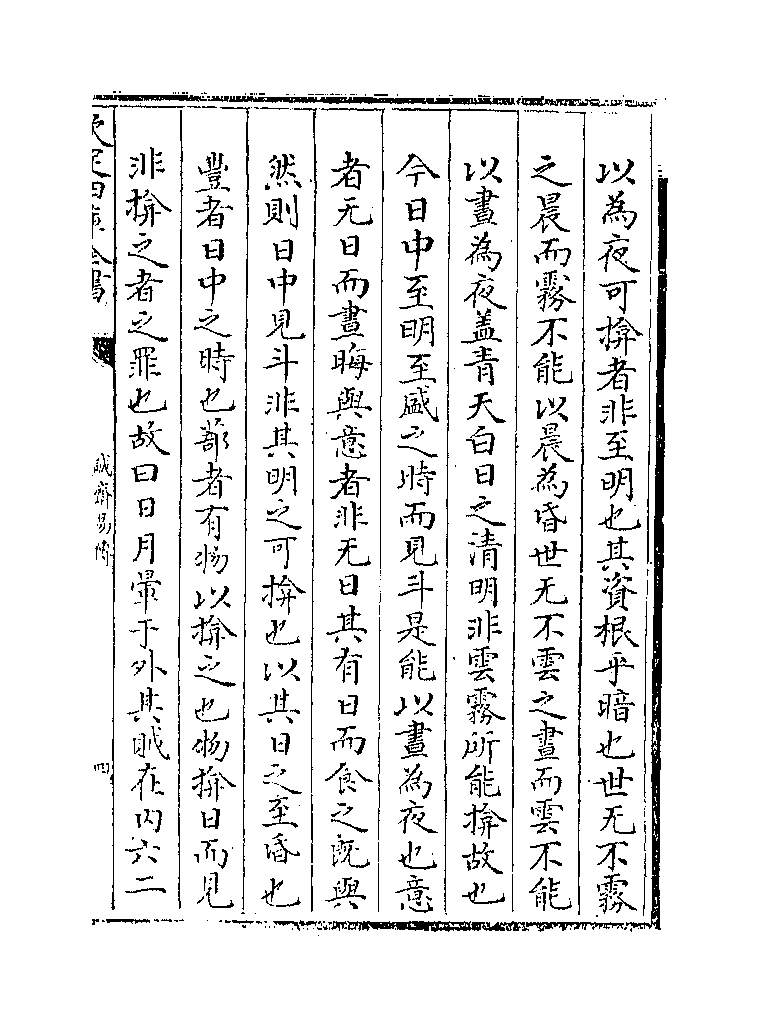 以為夜可揜者非至明也其資根乎暗也世无不霧
之晨而霧不能以晨為昏世无不雲之晝而雲不能
以晝為夜盖青天白日之清明非雲霧所能揜故也
今日中至明至盛之時而見斗是能以晝為夜也意
者无日而晝晦與意者非无日其有日而食之既與
然則日中見斗非其明之可揜也以其日之至昏也
豐者日中之時也蔀者有物以揜之也物揜日而見
非揜之者之罪也故曰日月暈于外其賊在内六二
欽定四庫全書
誠齋易傳
四